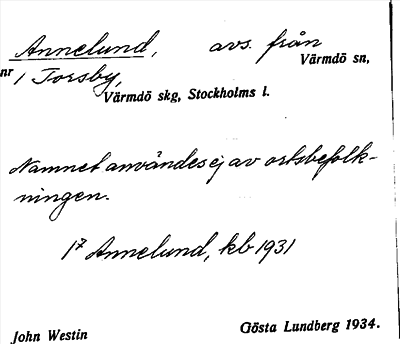 Annelund, avs. från
Värmdö sn,
nr 1 Torsby,
Värmdö skg, Stockholms l.
Namnet användes ej av ortsbefolk-
ningen.
1⁷ Annelund, kb 1931
John Westin
Gösta Lundberg 1934.